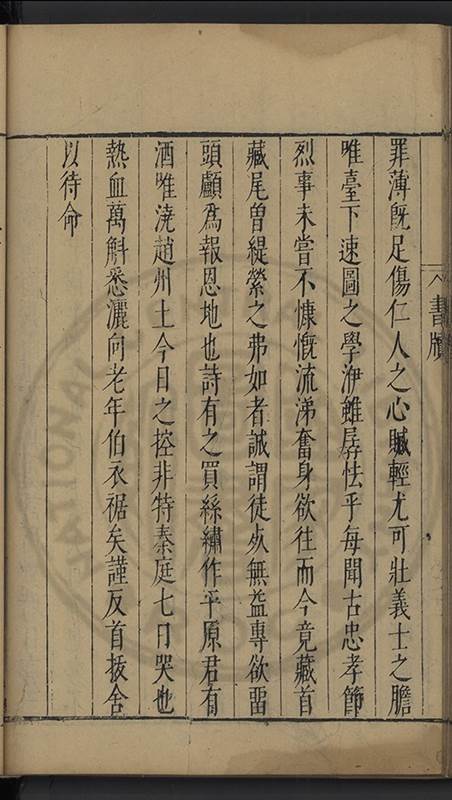 書牘
罪薄既足傷仁人之心贓輕尤可壯義士之膽
唯臺下速圖之學洢雖孱怯乎每聞古忠孝節
烈事未嘗不慷慨流涕奮身欲往而今竟藏首
藏尾曾緹縈之弗如者誠謂徒死無益專欲留
頭顱為報恩地也詩有之買絲繡作平原君有
酒唯澆趙州土今日之控非特秦庭七日哭也
熱血萬斛悉灑向老年伯衣裾矣謹反首拔舍
以待命